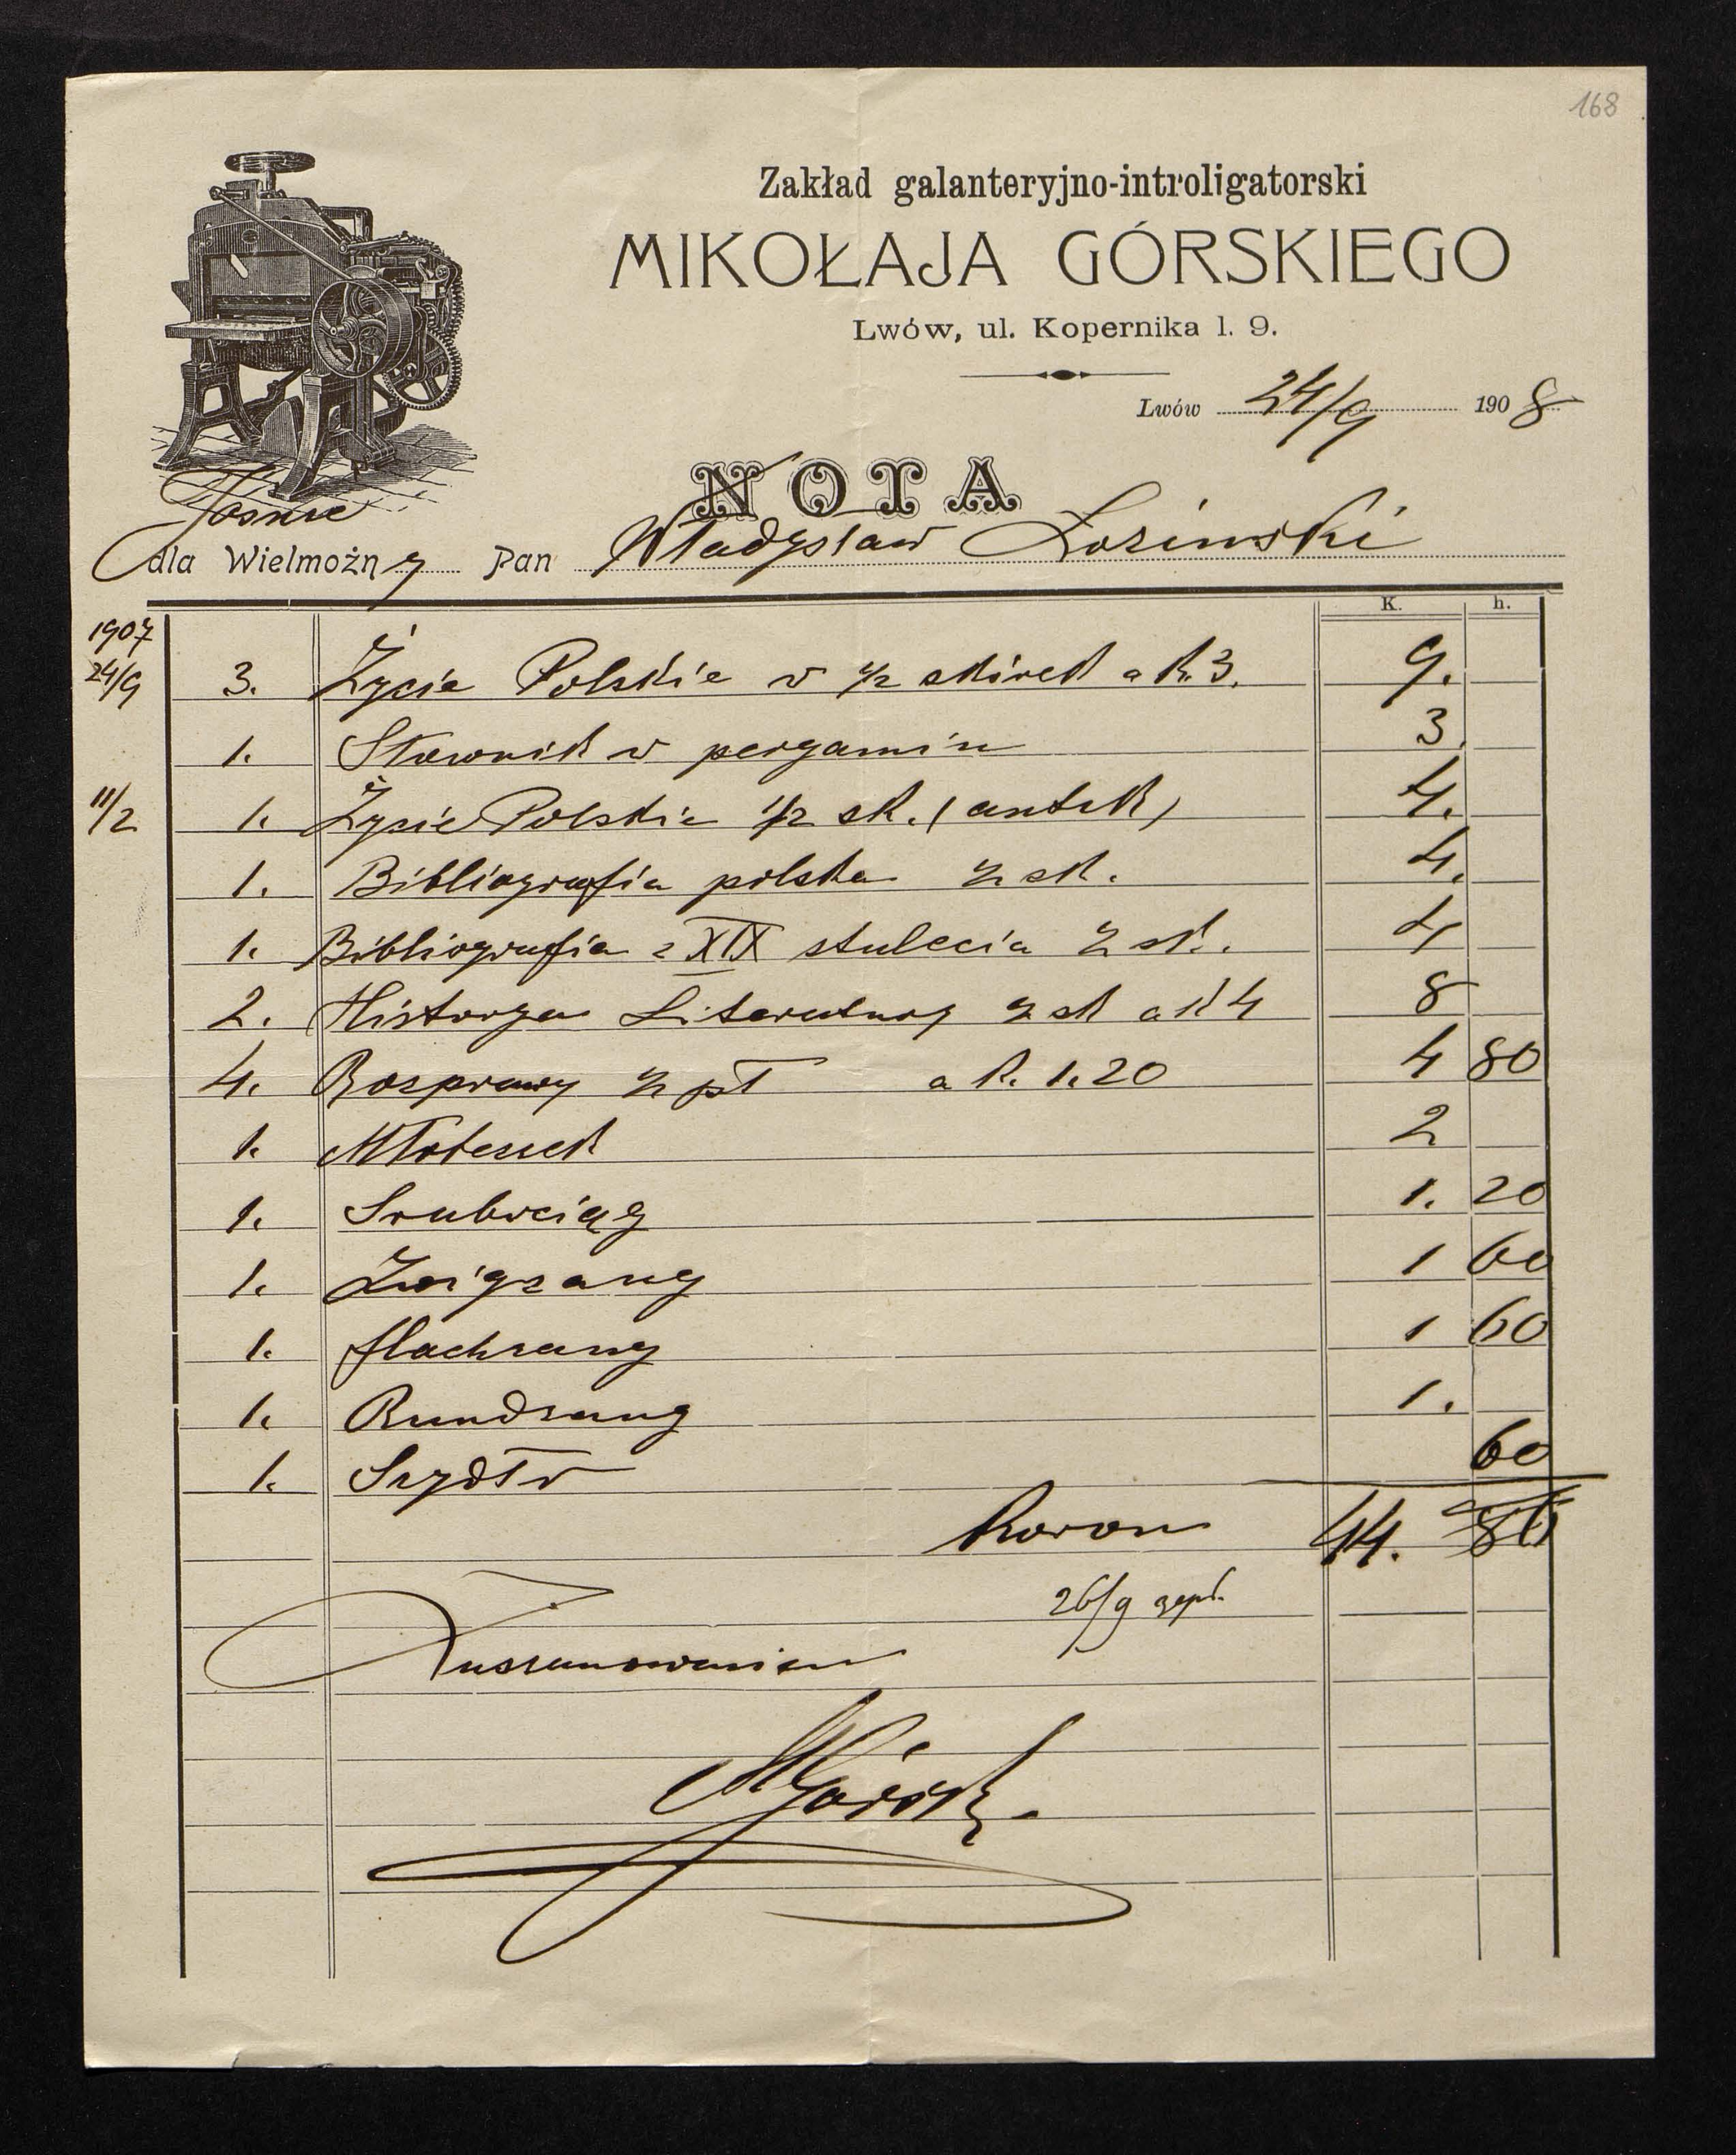 168
Zakład galanteryjno-introligatorski
MIKOŁAJA GÓRSKIEGO
Lwów, ul. Kopernika l. 9.
Lwów 24/9 1908
NOTA
Jasnie
dla Wielmożny Pan Władysław Łoziński
K. h.
1907
24/9 3. Życie Polskie w 1/2 skórek a K. 3. 9.
1. Słownik w pergamin 3.
11/2 1. Życie Polskie 1/2 sk. (antik) 4.
1. Bibliografia polska 1/2 sk. 4.
1. Bibliografia z XIX stulecia 1/2 sk. 4
2. Historya Literatury 1/2 sk a K 4 8
4. Rosprawy 1/2 pł a K. 1.20 4 80
1. Młoteczek 2
1. Srubociąg 1. 20
1. Zwigzang 1 60
1. flachzang 1 60
1. Rundzang 1.
1. Szydło 60
Koron 44. 80
26/9 zapł.
Z uszanowaniem
MGórski